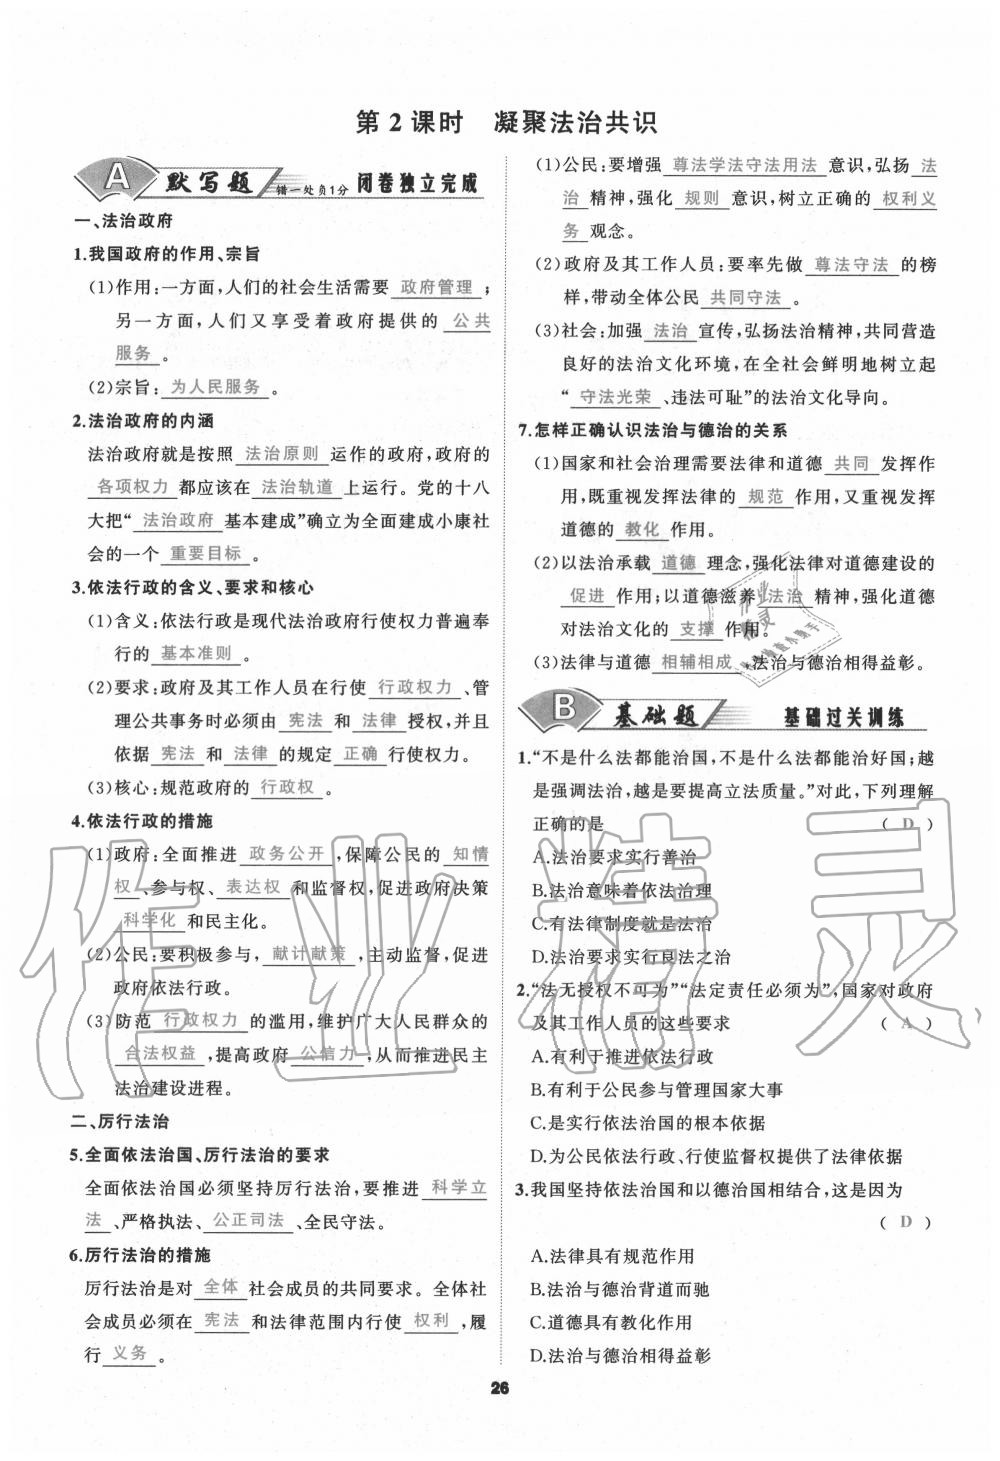 第2课时 凝聚法治共识
A 默写题 错一处负1分 闭卷独立完成
一、法治政府
1.我国政府的作用、宗旨
(1)作用:一方面,人们的社会生活需要 政府管理 ;
另一方面,人们又享受着政府提供的 公共
服务 。
(2)宗旨: 为人民服务 。
2.法治政府的内涵
法治政府就是按照 法治原则 运作的政府,政府的
各项权力 都应该在 法治轨道 上运行。党的十八
大把“ 法治政府 基本建成”确立为全面建成小康社
会的一个 重要目标 。
3.依法行政的含义、要求和核心
(1)含义:依法行政是现代法治政府行使权力普遍奉
行的 基本准则 。
(2)要求:政府及其工作人员在行使 行政权力 、管
理公共事务时必须由 宪法 和 法律 授权,并且
依据 宪法 和 法律 的规定 正确 行使权力。
(3)核心:规范政府的 行政权 。
4.依法行政的措施
(1)政府:全面推进 政务公开 ,保障公民的 知情
权 、参与权、 表达权 和监督权,促进政府决策
科学化 和民主化。
(2)公民:要积极参与, 献计献策 ,主动监督,促进
政府依法行政。
(3)防范 行政权力 的滥用,维护广大人民群众的
合法权益 ,提高政府 公信力 ,从而推进民主
法治建设进程。
二、厉行法治
5.全面依法治国、厉行法治的要求
全面依法治国必须坚持厉行法治,要推进 科学立
法 、严格执法、 公正司法 、全民守法。
6.厉行法治的措施
厉行法治是对 全体 社会成员的共同要求。全体社
会成员必须在 宪法 和法律范围内行使 权利 ,履
行 义务 。
(1)公民:要增强 尊法学法守法用法 意识,弘扬 法
治 精神,强化 规则 意识,树立正确的 权利义
务 观念。
(2)政府及其工作人员:要率先做 尊法守法 的榜
样,带动全体公民 共同守法 。
(3)社会:加强 法治 宣传,弘扬法治精神,共同营造
良好的法治文化环境,在全社会鲜明地树立起
“ 守法光荣 、违法可耻”的法治文化导向。
7.怎样正确认识法治与德治的关系
(1)国家和社会治理需要法律和道德 共同 发挥作
用,既重视发挥法律的 规范 作用,又重视发挥
道德的 教化 作用。
(2)以法治承载 道德 理念,强化法律对道德建设的
促进 作用;以道德滋养 法治 精神,强化道德
对法治文化的 支撑 作用。
(3)法律与道德 相辅相成 ,法治与德治相得益彰。
B 基础题 基础过关训练
1.“不是什么法都能治国,不是什么法都能治好国;越
是强调法治,越是要提高立法质量。”对此,下列理解
正确的是 ( D )
A.法治要求实行善治
B.法治意味着依法治理
C.有法律制度就是法治
D.法治要求实行良法之治
2.“法无授权不可为”“法定责任必须为”,国家对政府
及其工作人员的这些要求 ( A )
A.有利于推进依法行政
B.有利于公民参与管理国家大事
C.是实行依法治国的根本依据
D.为公民依法行政、行使监督权提供了法律依据
3.我国坚持依法治国和以德治国相结合,这是因为
( D )
A.法律具有规范作用
B.法治与德治背道而驰
C.道德具有教化作用
D.法治与德治相得益彰
26
作业精灵